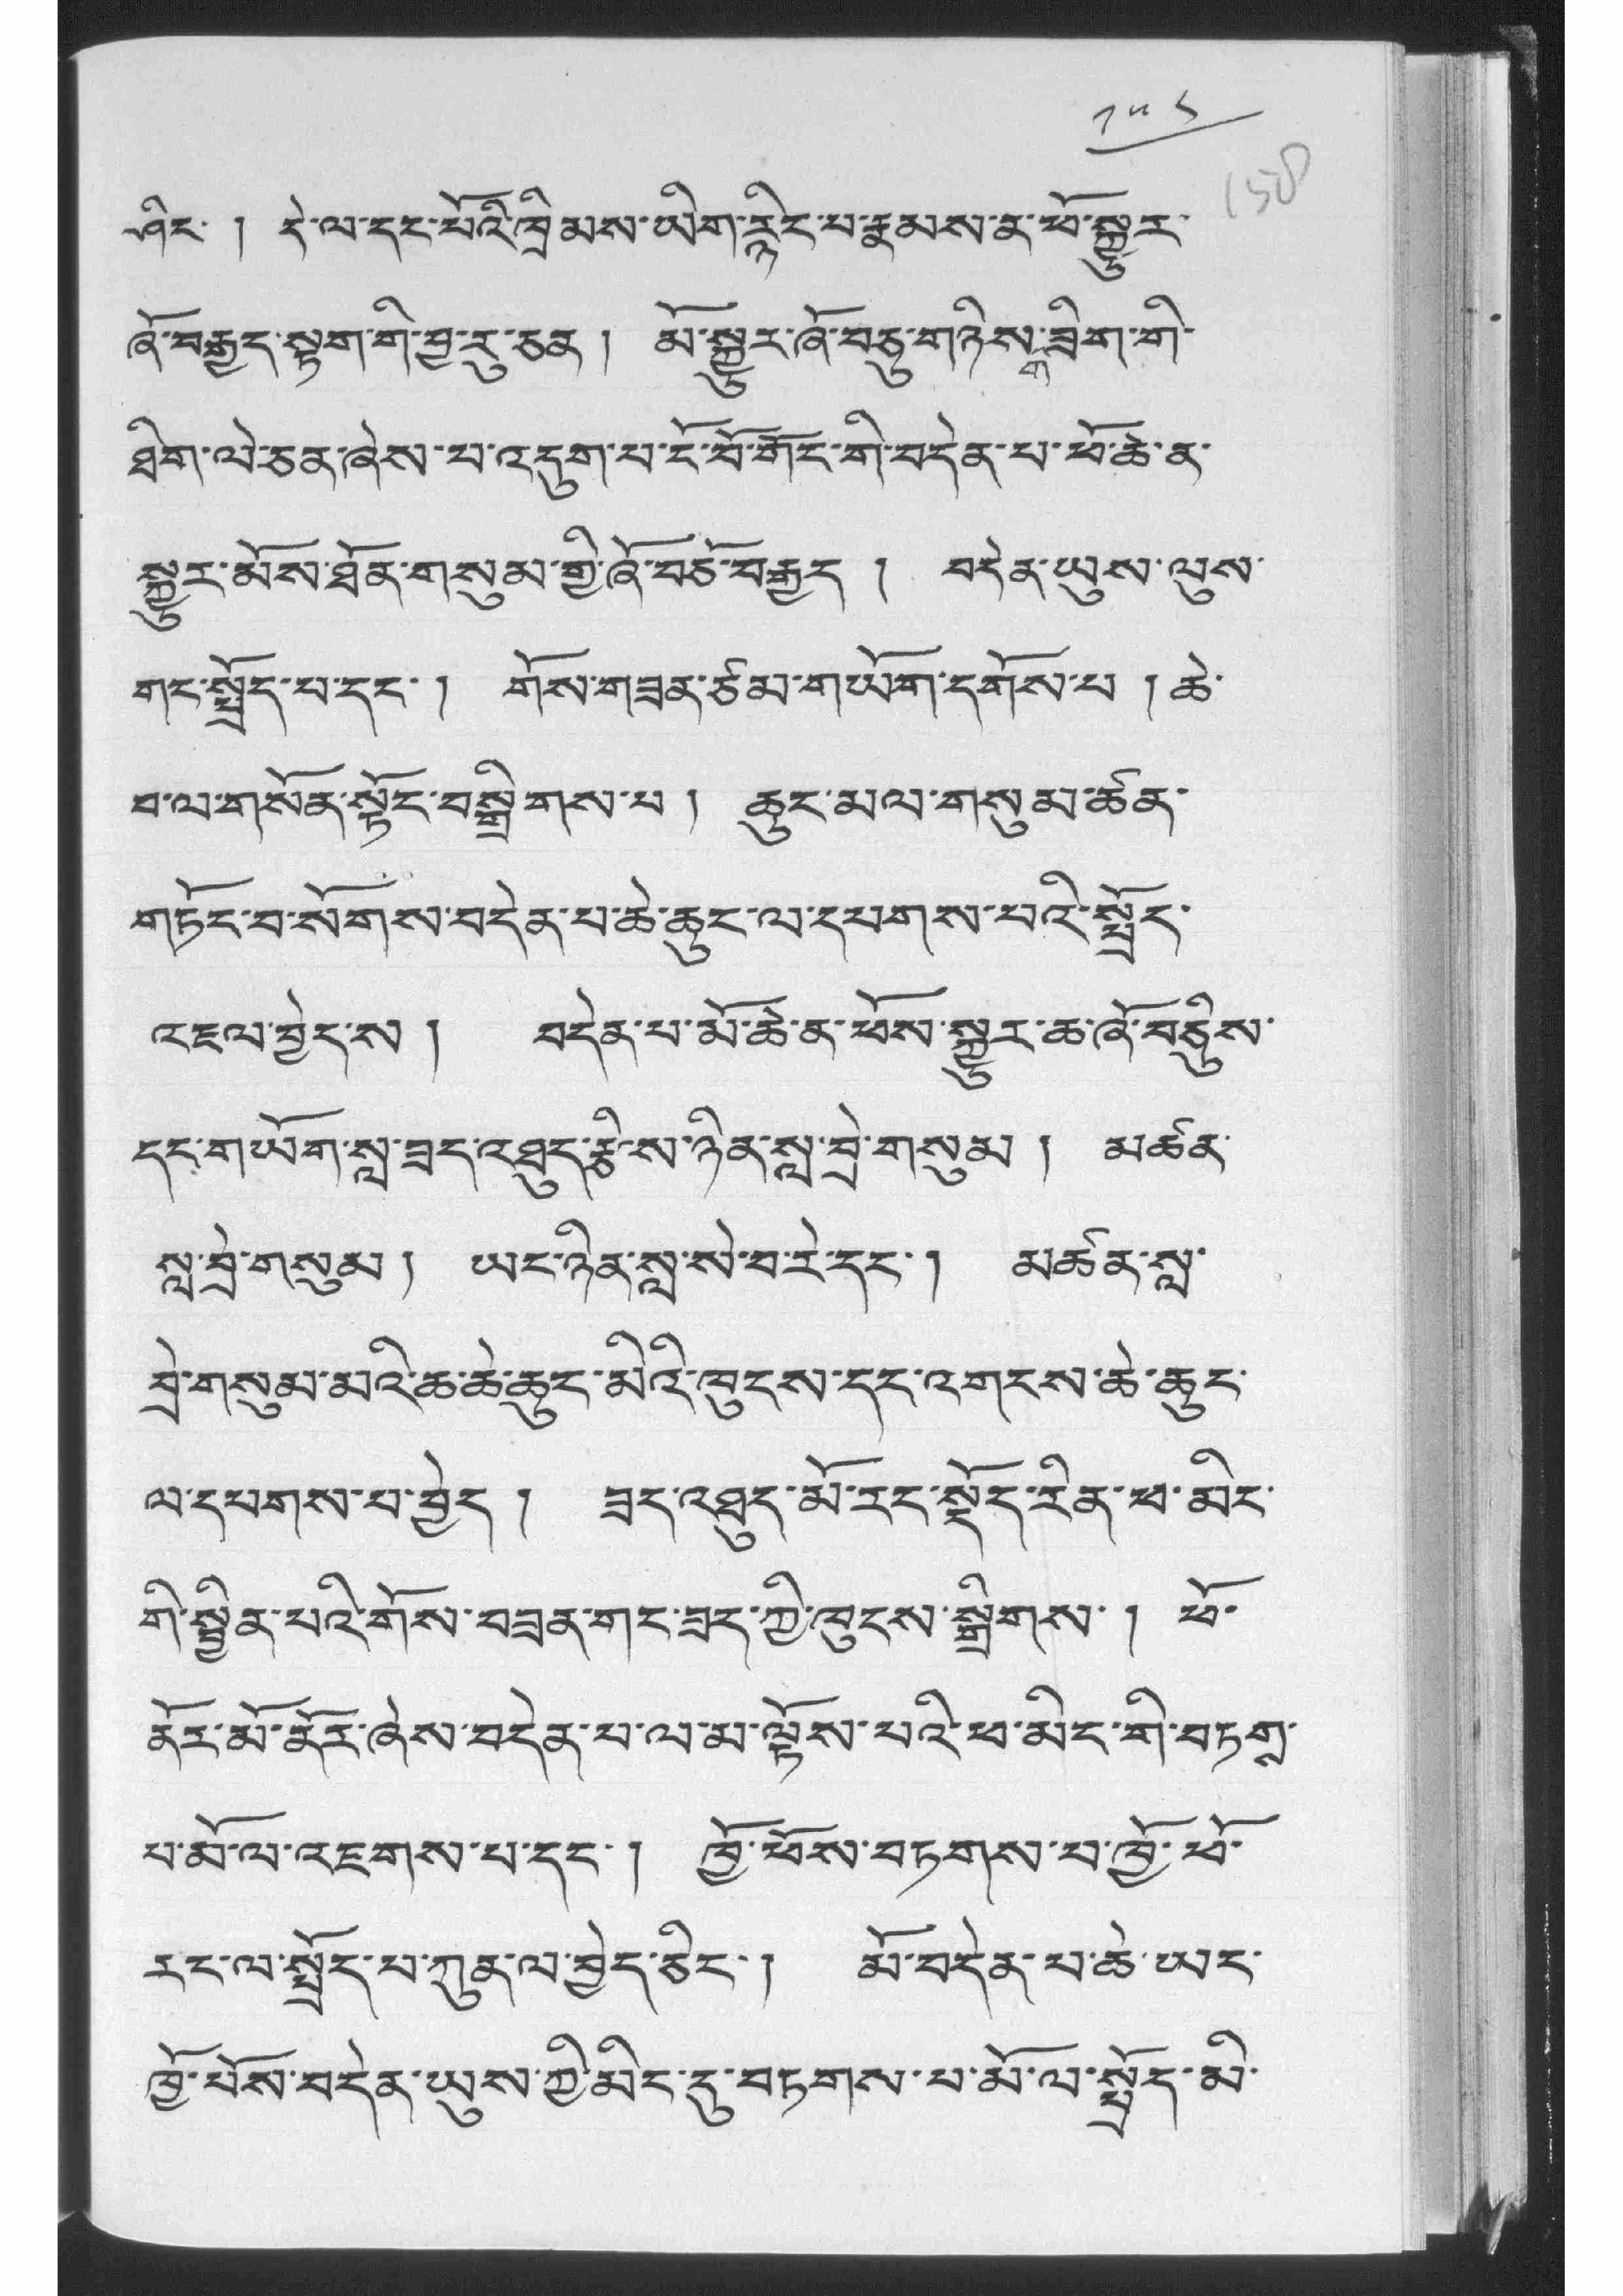 ༡༥༨
158
ཞིང་ ། དེ་ལ་དང་པོའི་ཁྲིམས་ཡིག་རྙིང་པ་རྣམས་ན་ཕོ་སྐྱུར་
ཞོ་བརྒྱད་སྟག་གི་བྱ་རུ་ཅན ། མོ་སྐྱུར་ཞོ་བཅུ་གཉིས་གཟིག་གི་
ཐིག་ལེ་ཅན་ཞེས་པ་འདུག་པ་ངོ་བོ་གོང་གི་བདེན་པ་ཕོ་ཆེ་ན་
སྐྱུར་མོས་ཐོན་གསུམ་གྱི་ཞོ་བཅོ་བརྒྱད ། བདེན་ཡུས་ལུས་
གང་སྤྲོད་པ་དང་ ། གོས་གཟན་ཙམ་གཡོག་དགོས་པ ། ཆེ་
བ་ལ་གསོན་སྟོང་བསྒྲིགས་པ ། ཆུང་མལ་གསུམ་ཚན་
གཏོང་བ་སོགས་བདེན་པ་ཆེ་ཆུང་ལ་དཔགས་པའི་སྤྲོད་
འཇལ་བྱེད་ས ། བདེན་པ་མོ་ཆེ་ན་ཕོས་སྐྱུར་ཆ་ཞོ་བཅུས་
དང་གཡོག་སླ་ཟང་འཐུད་རྩིས་ཉིན་སླ་བྲེ་གསུམ ། མཚན་
སླ་བྲེ་གསུམ ། ཡང་ཉིན་སླ་སེ་བ་རེ་དང་ ། མཚན་སླ་
བྲེ་གསུམ་མའི་ཆ་ཆེ་ཆུང་མིའི་ཁུངས་དང་འགངས་ཆེ་ཆུང་
ལ་དཔགས་པ་བྱེད ། ཟང་འཐུད་མོ་རང་སྡོད་རིན་ཕ་མིང་
གི་སྦྱིན་པའི་གོས་བཟན་གང་ཟང་ཀྱི་ཁུངས་སྒྲིགས་ ། ཕོ་
ནོར་མོ་ནོར་ཞེས་བདེན་པ་ལ་མ་ལྟོས་པའི་ཕ་མིང་གི་བཏགས་
པ་མོ་ལ་འཇགས་པ་དང་ ། ཁྱོ་ཕོས་བཏགས་པ་ཁྱོ་ཕོ་
རང་ལ་སྤྲོད་པ་ཀུན་ལ་བྱེད་ཅིང་ ། མོ་བདེན་པ་ཆེ་ཡང་
ཁྱོ་པོས་བདེན་ཡུས་ཀྱི་མིང་དུ་བཏགས་པ་མོ་ལ་སྤྲོད་མི་